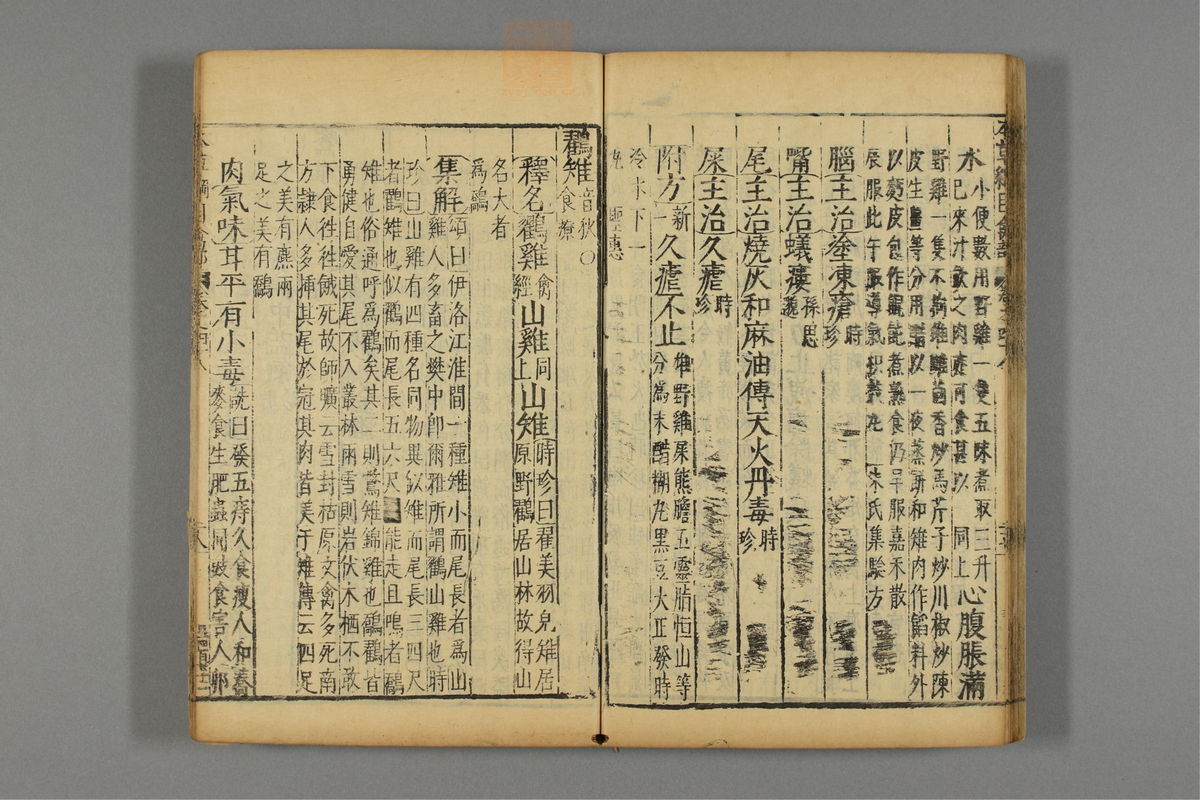 水 小便數用野雞一隻五味煮取三升
已來汁飲之肉亦可食甚妙 同上 心腹脹滿
野雞一隻不拘雄雌茴香炒馬芹子炒川椒炒陳
皮生薑等分用醋以一夜蒸餅和雉肉作餡料外
以麪皮包作餛飩煮熟食仍早服嘉禾散
辰服此午服導氣枳殼丸 朱氏集驗方
腦主治塗凍瘡時珍
嘴主治蟻瘻孫思邈
尾主治燒灰和麻油傅天火丹毒時珍
屎主治久瘧時珍
附方新一久瘧不止雄野雞屎熊膽五靈脂恒山等
分為末醋糊丸黑豆大正發時
冷水下一
聖惠
鸐雉音狄〇食療
釋名鸐雞禽經山雞同上山雉時珍曰翟美羽皃雉居原野鸐居山林故得山
名大者
為鸐
集解頌曰伊洛江淮間一種雉小而尾長者為山
雞人多畜之樊中即爾雅所謂鸐山雞也時
珍曰山雞有四種名同物異似雉而尾長三四尺
者鸐雉也似鸐而尾長五六尺能走且鳴者鷮
雉也俗通呼為鸐矣其二則鷩雉錦雞也鷮鸐皆
勇健自愛其尾不入叢林雨雪則岩伏木栖不敢
下食往往餓死故師曠云雪封枯原文禽多死南
方隷人多插其尾於冠其肉皆美于雉傳云四足
之美有麃兩
足之美有鷮
肉氣味甘平有小毒詵曰發五痔久食瘦人和蕎
麥食生肥蟲同豉食害人